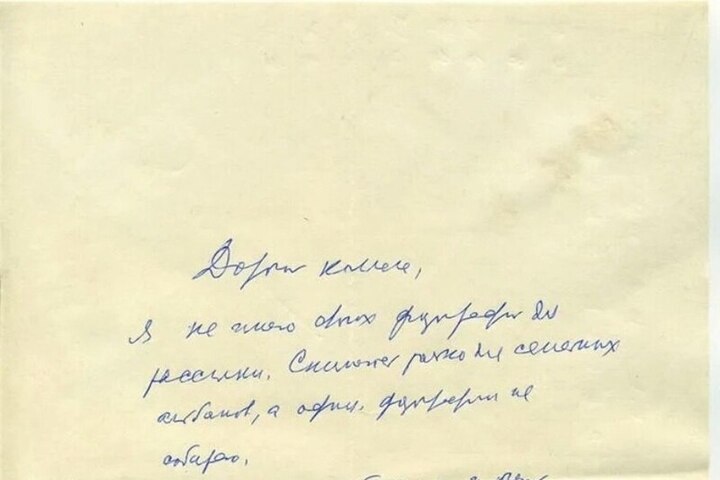 Дорогой коллега,
я не имею своих фотографий для
рассылки. Снимают редко для семейных
альбомов, а офиц. фотографии не
собираю.